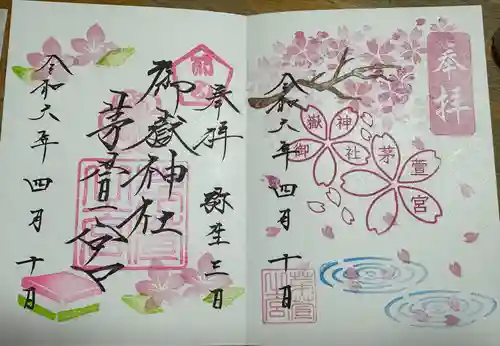 奉拝
令和六年四月十日
御嶽神社
茅萱宮
奉拝
弥生三日
御嶽神社
茅萱宮
令和六年四月十日